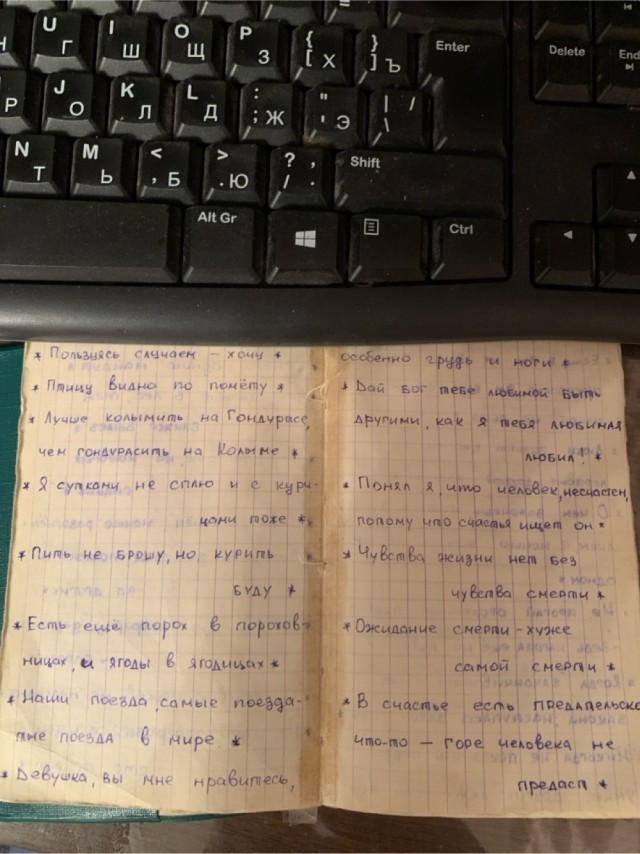 U Г I Ш O Щ P З { [ Х } ] Ъ Enter Delete End
Р J О K Л L Д : ; Ж " ' Э | / \
N Т M Ь < , Б > . Ю ? , / . Shift
Alt Gr Ctrl
* Пользуясь случаем – хочу *
* Птицу видно по помёту *
* Лучше колымить на Гондурасе,
чем гондурасить на Колыме *
* Я сутками не сплю и с кури-
цами тоже *
* Пить не брошу, но курить
буду *
* Есть ещё порох в порохов-
ницах, и ягоды в ягодицах *
* Наши поезда, самые поезда-
тые поезда в мире *
* Девушка, вы мне нравитесь,
особенно грудь и ноги *
* Дай бог тебе любимой быть
другими, как я тебя любимая
любил. *
* Понял я, что человек, несчастен,
потому что счастья ищет он *
* Чувства жизни нет без
чувства смерти *
* Ожидание смерти – хуже
самой смерти *
* В счастье есть предательско
что-то – горе человека не
предаст *